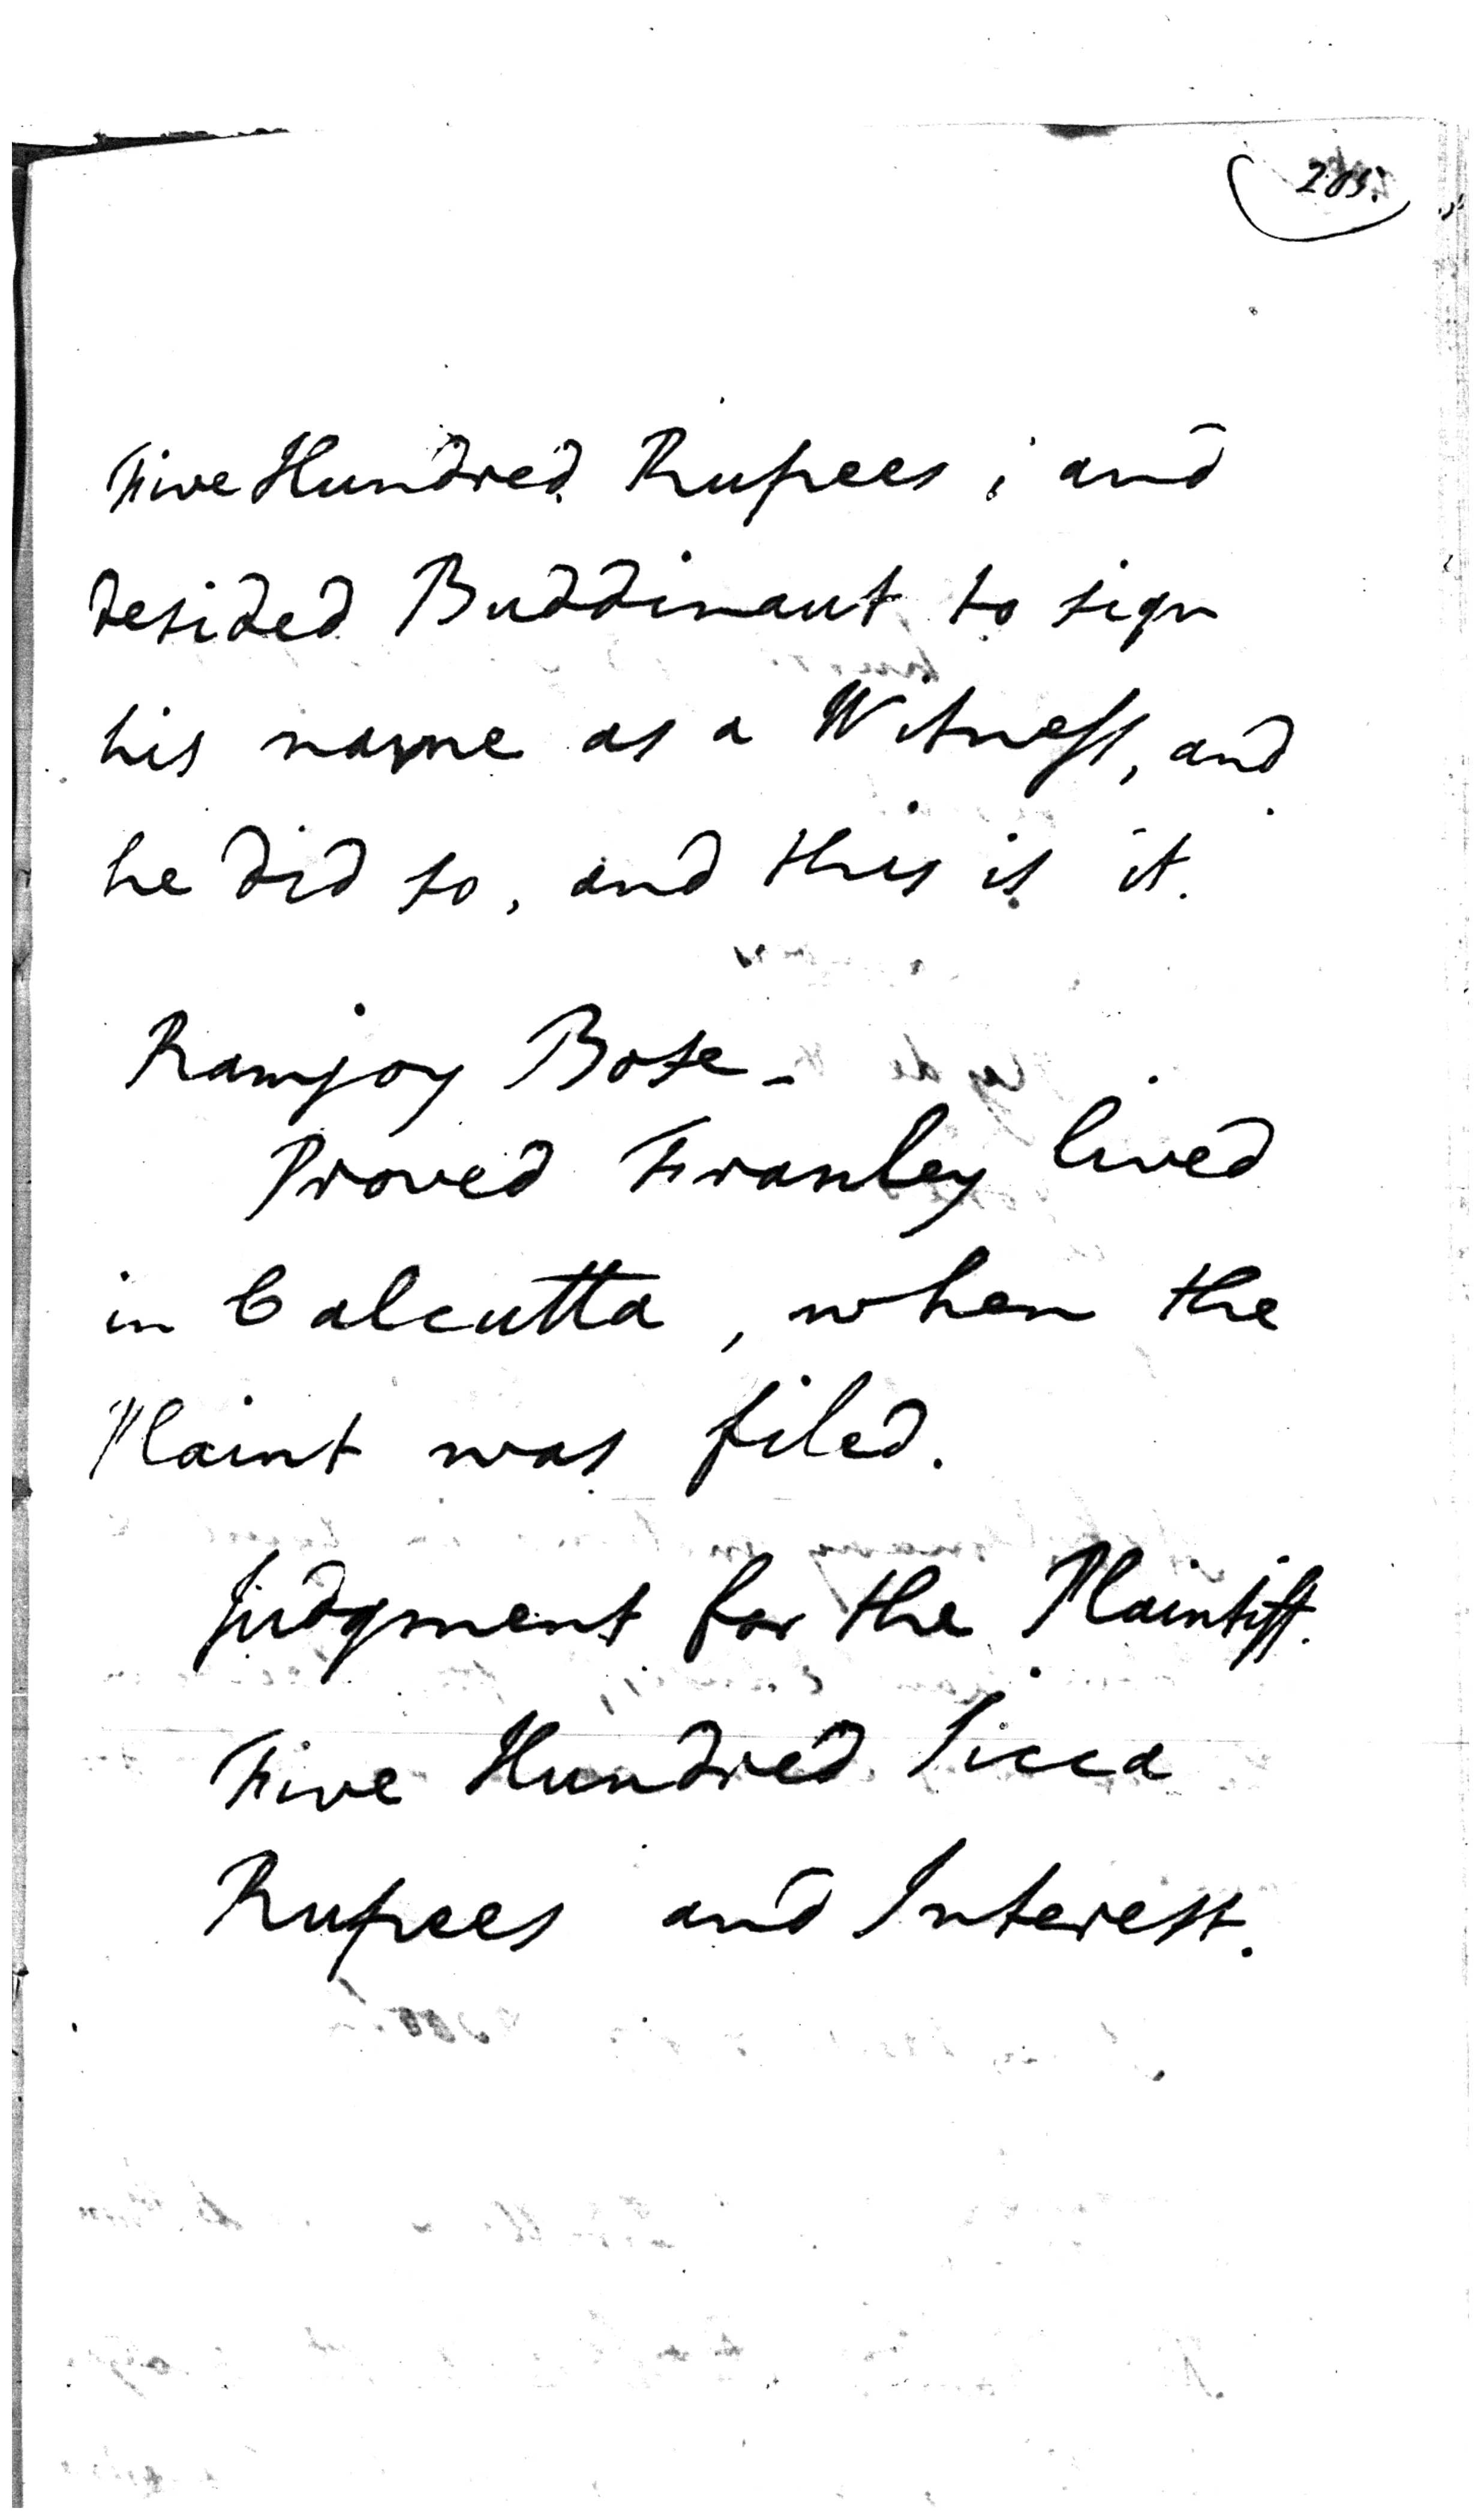 205.
Five Hundred Rupees; and
desided Buddinaut to sign
his name as a Witness, and
he did so, and this is it.
Ramjoy Bose -
Proved Franley lived
in Calcutta, when the
Plaint was filed.
Judgment for the Plaintiff.
Five Hundred Sicca
Rupees and Interest.